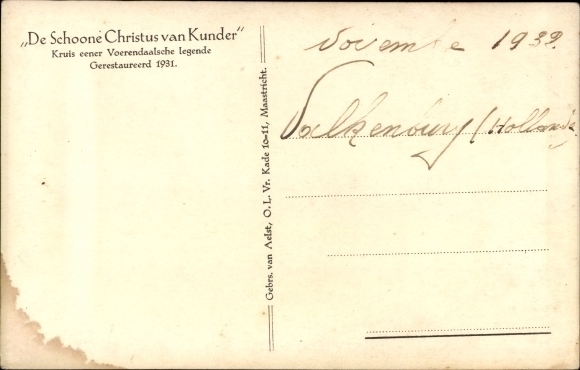 „De Schoone Christus van Kunder"
Kruis eener Voerendaalsche legende
Gerestaureerd 1931.
Gebrs. van Aelst, O. L. Vr. Kade 10-11, Maastricht.
Novembe 1932.
Valkenburg / Hollande